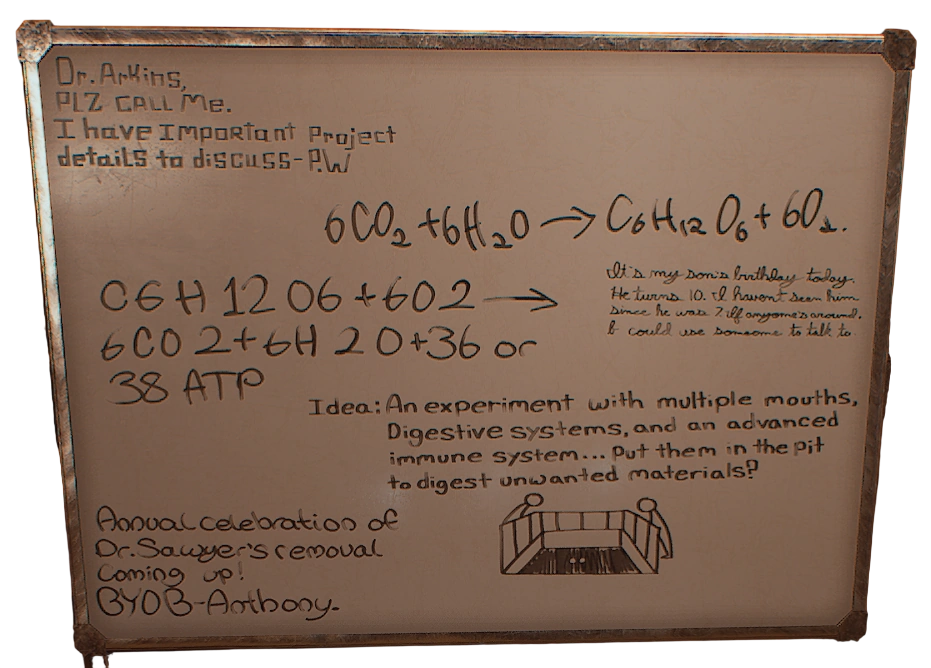 Dr. Arkins,
PLZ CALL Me.
I have Important Project
details to discuss-P.W
6CO₂+6H₂O→C₆H₁₂O₆+6O₂.
C6H12O6+6O2→
6CO2+6H2O+36 or
38 ATP
It's my son's birthday today.
He turns 10. I havent seen him
since he was 7. If anyone's around.
I could use someone to talk to
Idea: An experiment with multiple mouths,
Digestive systems, and an advanced
immune system... Put them in the pit
to digest unwanted materials?
Annual celebration of
Dr. Sawyer's removal
Coming up!
BYOB-Anthony-